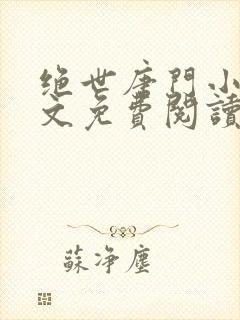 绝世唐門小
文免費閱讀
蘇净塵